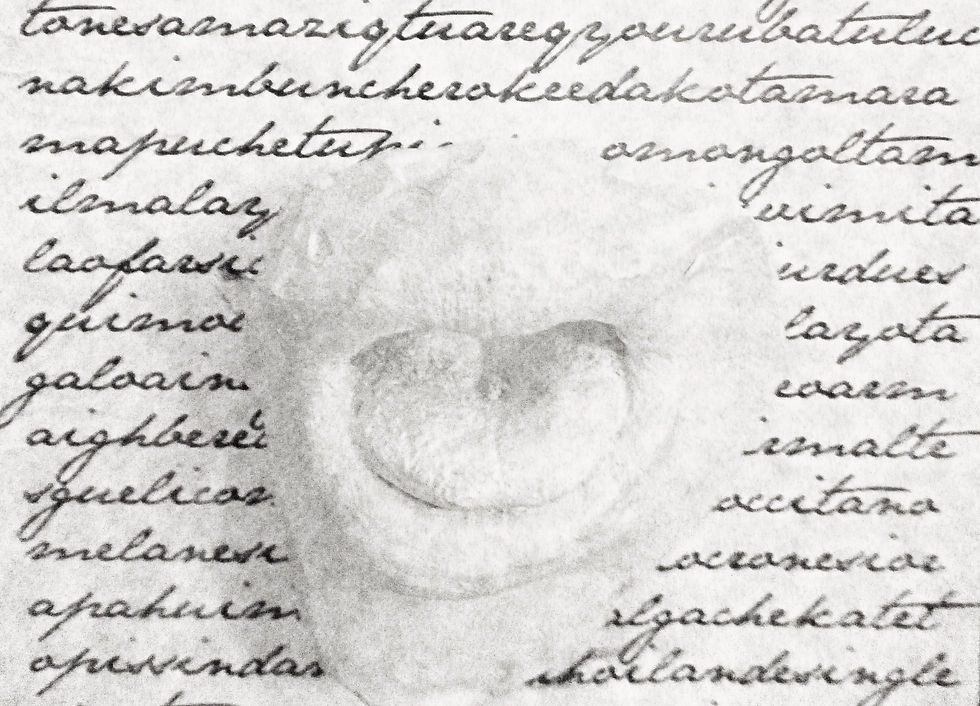 tonesamazigtuaregyourubatuluc
nakimbuncherokeedakotamara
mapuchetupi omongoltam
ilmalay vimita
laofarsi urdues
quimoe layota
galoain coarm
aighbere rmalte
sguelicor occitano
melanesi ocronesioe
apahuim algachekatet
opissindar shoilandesingle